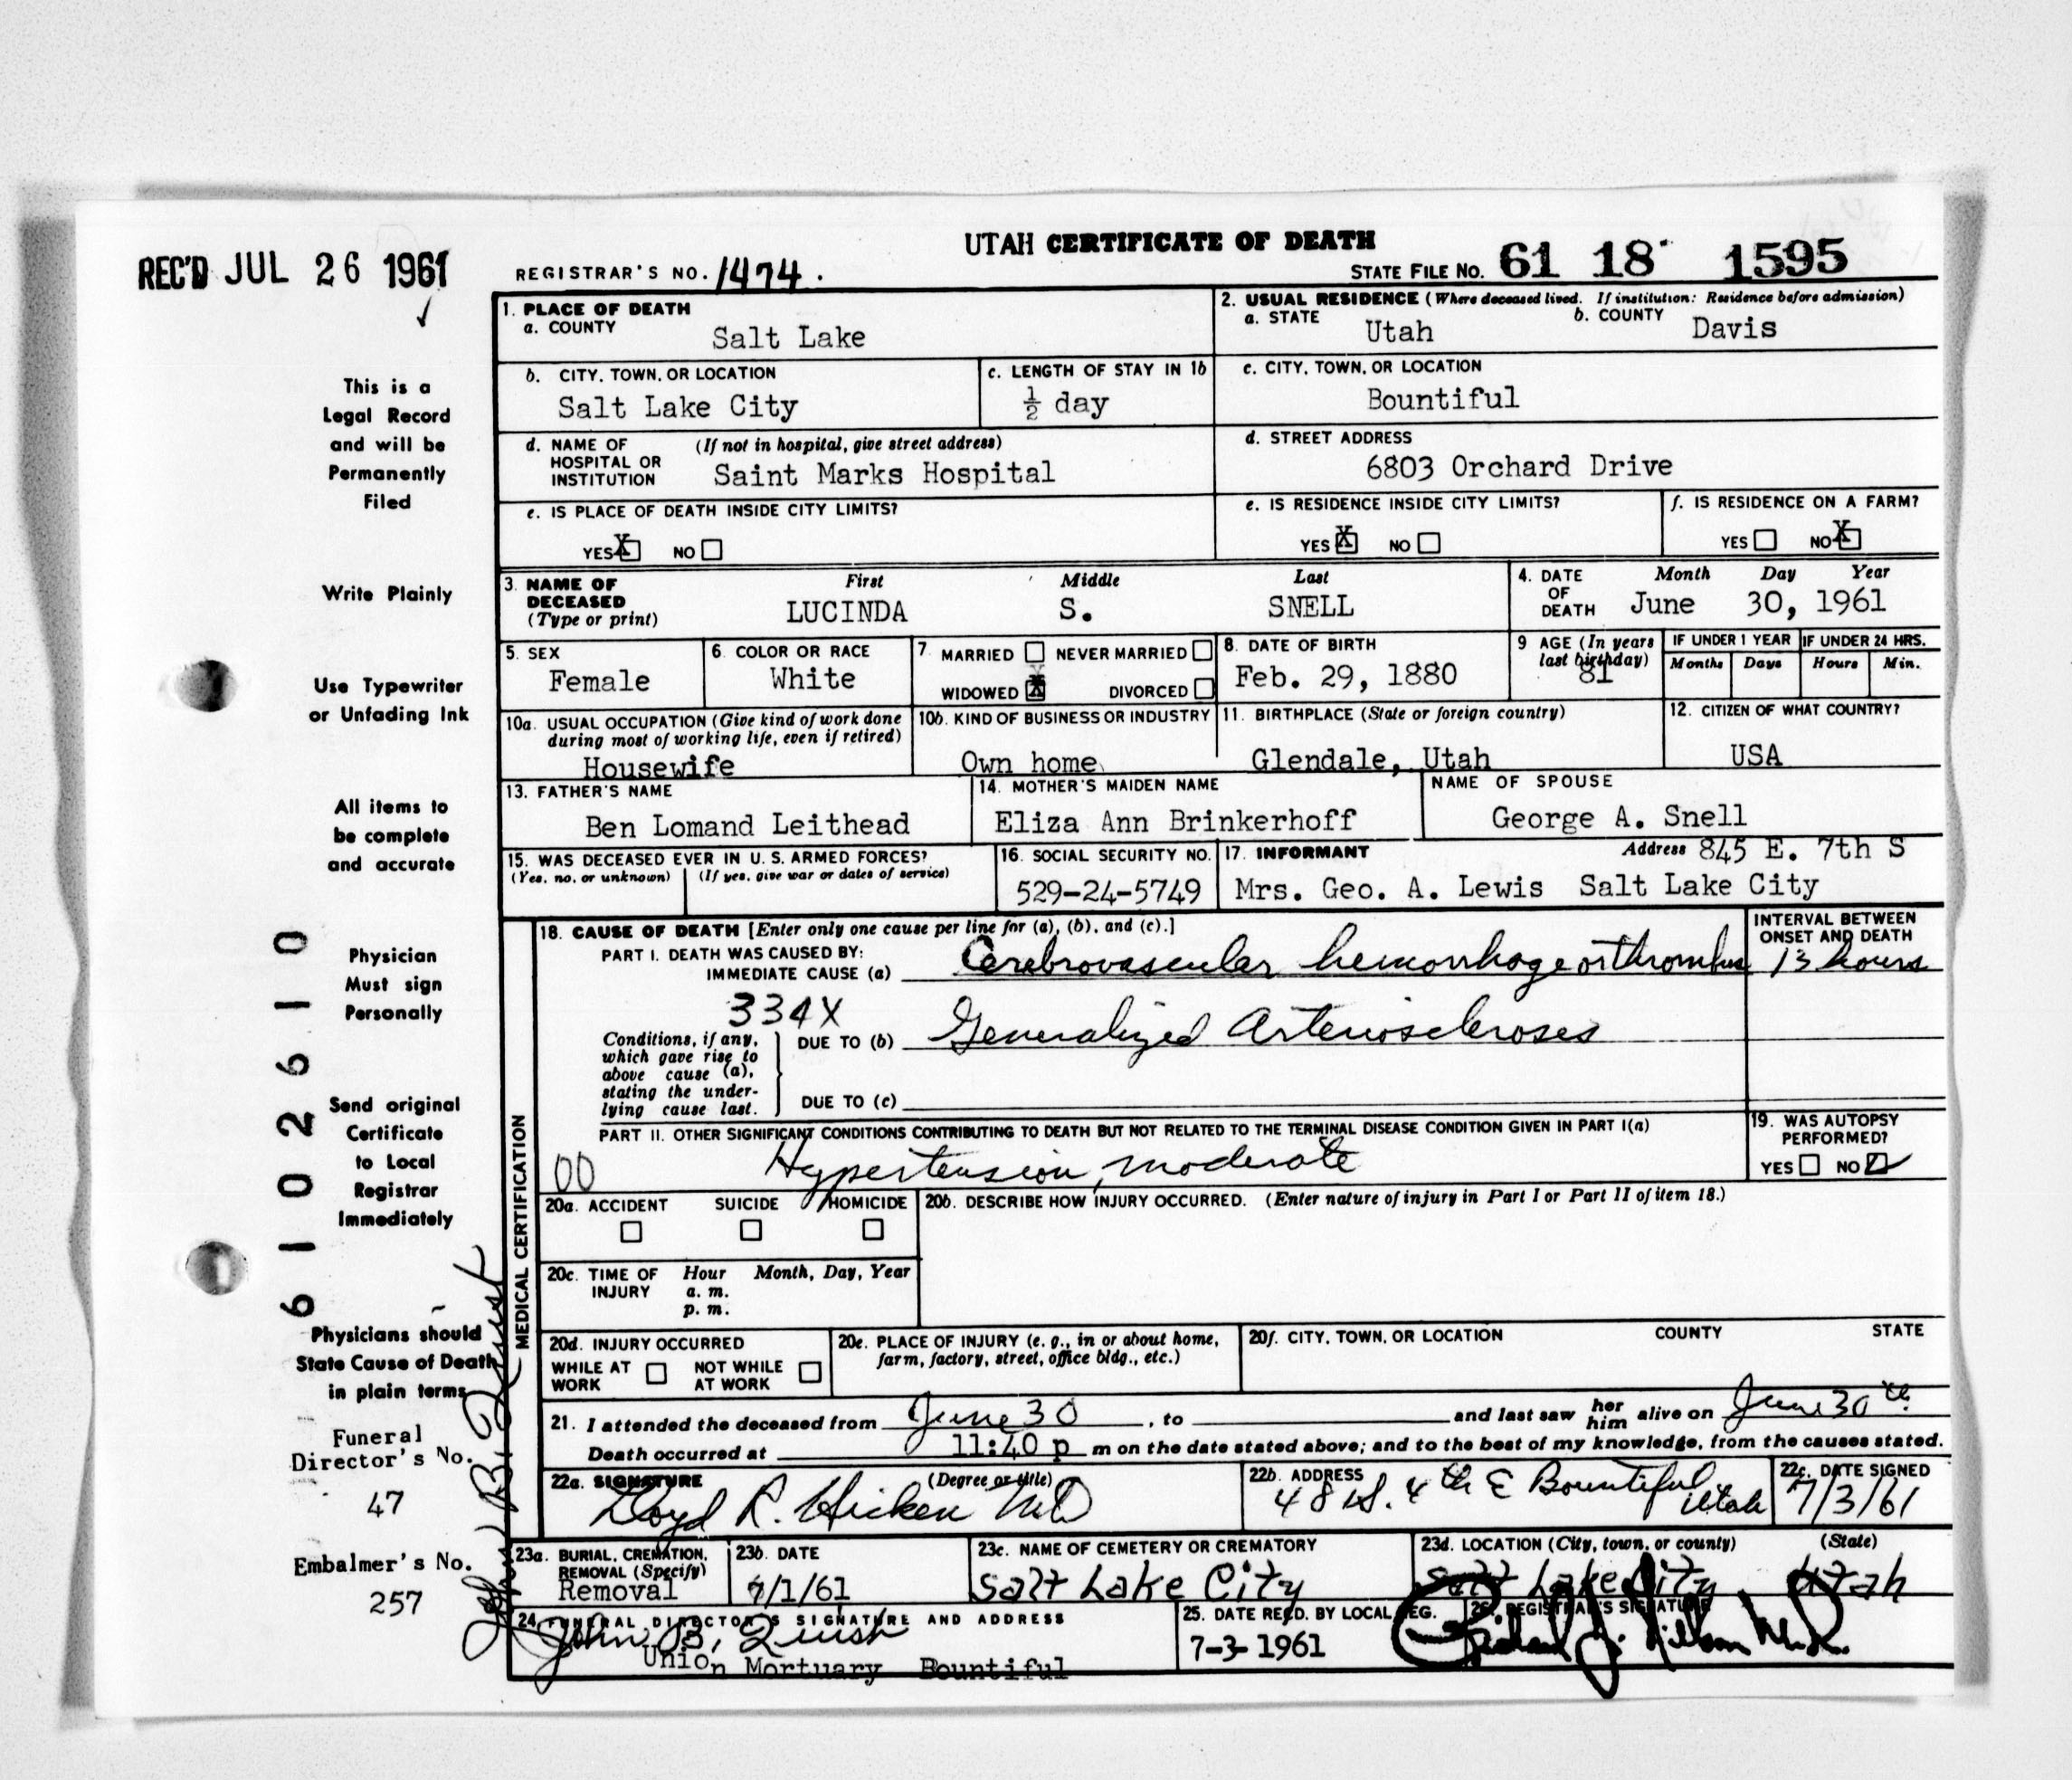 UTAH CERTIFICATE OF DEATH
REC'D JUL 26 1961
REGISTRAR'S NO. 1474.
STATE FILE NO. 61 18 1595
1. PLACE OF DEATH
a. COUNTY
Salt Lake
2. USUAL RESIDENCE (Where deceased lived. If institution: Residence before admission)
a. STATE
Utah
b. COUNTY
Davis
b. CITY, TOWN, OR LOCATION
Salt Lake City
c. LENGTH OF STAY IN 1b
½ day
c. CITY, TOWN, OR LOCATION
Bountiful
d. NAME OF HOSPITAL OR INSTITUTION
(If not in hospital, give street address)
Saint Marks Hospital
d. STREET ADDRESS
6803 Orchard Drive
e. IS PLACE OF DEATH INSIDE CITY LIMITS?
YES X NO
e. IS RESIDENCE INSIDE CITY LIMITS?
YES X NO
f. IS RESIDENCE ON A FARM?
YES NO X
3. NAME OF DECEASED (Type or print)
First Middle Last
LUCINDA S. SNELL
4. DATE OF DEATH
Month Day Year
June 30, 1961
5. SEX
Female
6. COLOR OR RACE
White
7. MARRIED NEVER MARRIED
WIDOWED X DIVORCED
8. DATE OF BIRTH
Feb. 29, 1880
9 AGE (In years last birthday)
81
IF UNDER 1 YEAR
Months Days
IF UNDER 24 HRS.
Hours Min.
10a. USUAL OCCUPATION (Give kind of work done during most of working life, even if retired)
Housewife
10b. KIND OF BUSINESS OR INDUSTRY
Own home
11. BIRTHPLACE (State or foreign country)
Glendale, Utah
12. CITIZEN OF WHAT COUNTRY?
USA
13. FATHER'S NAME
Ben Lomand Leithead
14. MOTHER'S MAIDEN NAME
Eliza Ann Brinkerhoff
NAME OF SPOUSE
George A. Snell
15. WAS DECEASED EVER IN U.S. ARMED FORCES?
(Yes, no, or unknown) (If yes, give war or dates of service)
16. SOCIAL SECURITY NO.
529-24-5749
17. INFORMANT
Address 845 E. 7th S
Mrs. Geo. A. Lewis Salt Lake City
MEDICAL CERTIFICATION
18. CAUSE OF DEATH [Enter only one cause per line for (a), (b), and (c).]
INTERVAL BETWEEN ONSET AND DEATH
PART I. DEATH WAS CAUSED BY:
IMMEDIATE CAUSE (a) Cerebrovascular hemorrhage or thrombus 13 hours
334X
Conditions, if any, which gave rise to above cause (a), stating the underlying cause last.
DUE TO (b) Generalized Arteriosclerosis
DUE TO (c)
PART II. OTHER SIGNIFICANT CONDITIONS CONTRIBUTING TO DEATH BUT NOT RELATED TO THE TERMINAL DISEASE CONDITION GIVEN IN PART I(a)
00 Hypertension, moderate
19. WAS AUTOPSY PERFORMED?
YES NO
20a. ACCIDENT SUICIDE HOMICIDE
20b. DESCRIBE HOW INJURY OCCURRED. (Enter nature of injury in Part I or Part II of item 18.)
20c. TIME OF INJURY
Hour Month, Day, Year
a. m.
p. m.
20d. INJURY OCCURRED
WHILE AT WORK NOT WHILE AT WORK
20e. PLACE OF INJURY (e. g., in or about home, farm, factory, street, office bldg., etc.)
20f. CITY, TOWN, OR LOCATION COUNTY STATE
21. I attended the deceased from June 30, to and last saw her him alive on June 30th
Death occurred at 11:40 p m on the date stated above; and to the best of my knowledge, from the causes stated.
22a. SIGNATURE (Degree or title)
Lloyd R. Hicken MD
22b. ADDRESS
48 S. 4th E Bountiful Utah
22c. DATE SIGNED
7/3/61
23a. BURIAL, CREMATION, REMOVAL (Specify)
Removal
23b. DATE
7/1/61
23c. NAME OF CEMETERY OR CREMATORY
Salt Lake City
23d. LOCATION (City, town, or county) (State)
Salt Lake City Utah
24. FUNERAL DIRECTOR'S SIGNATURE AND ADDRESS
John B.
Union Mortuary Bountiful
25. DATE RECD. BY LOCAL REG.
7-3-1961
26. REGISTRAR'S SIGNATURE
This is a
Legal Record
and will be
Permanently
Filed
Write Plainly
Use Typewriter
or Unfading Ink
All items to
be complete
and accurate
Physician
Must sign
Personally
Send original
Certificate
to Local
Registrar
Immediately
Physicians should
State Cause of Death
in plain terms
Funeral
Director's No.
47
Embalmer's No.
257
6102610
John B.